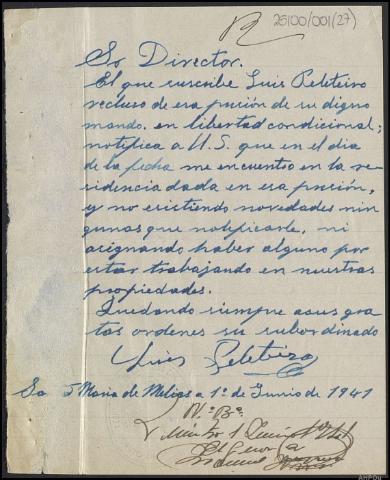 25100/001(27)
Sr Director.
El que suscribe Luis Peleteiro
recluso de esa prision de su digno
mando, en libertad condicional;
notifica a U.S. que en el dia
de la fecha me encuentro en la re-
sidencia dada en esa prision,
y no existiendo novedades nin-
gunas que notificarle, ni
asignando haber alguno por
estar trabajando en nuestras
propiedades.
Quedando siempre a sus gra-
tas ordenes su subordinado
Luis Peleteiro
Sta Maria de Melias a 1º de Junio de 1941
Vº Bº
AHPOu